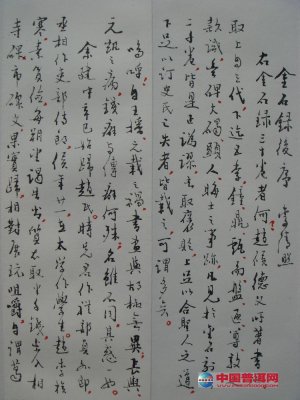 金石録後序 李清照
右金石録三十卷者何趙侯德父所著書
取上自三代下迄五季鐘鼎甗鬲盤匜尊敦
款識豐碑大碣顯人晦士之事跡凡見於金石刻
二千卷皆是正譌謬去取褒貶上足以合聖人之道
下足以訂史氏之失者皆載之可謂多矣
嗚呼自王播元載之禍書畫與胡椒無異長輿
元凱之病錢癖與傳癖何殊名雖不同其惑一也
余建中辛巳始歸趙氏時先君作禮部員外郎
丞相作吏部侍郎侯年廿一在太學作學生趙李族
寒素貧儉每朔望謁告出質衣取半千錢步入相
寺碑市碑文果實歸相對展玩咀嚼自謂葛
中国普洱网